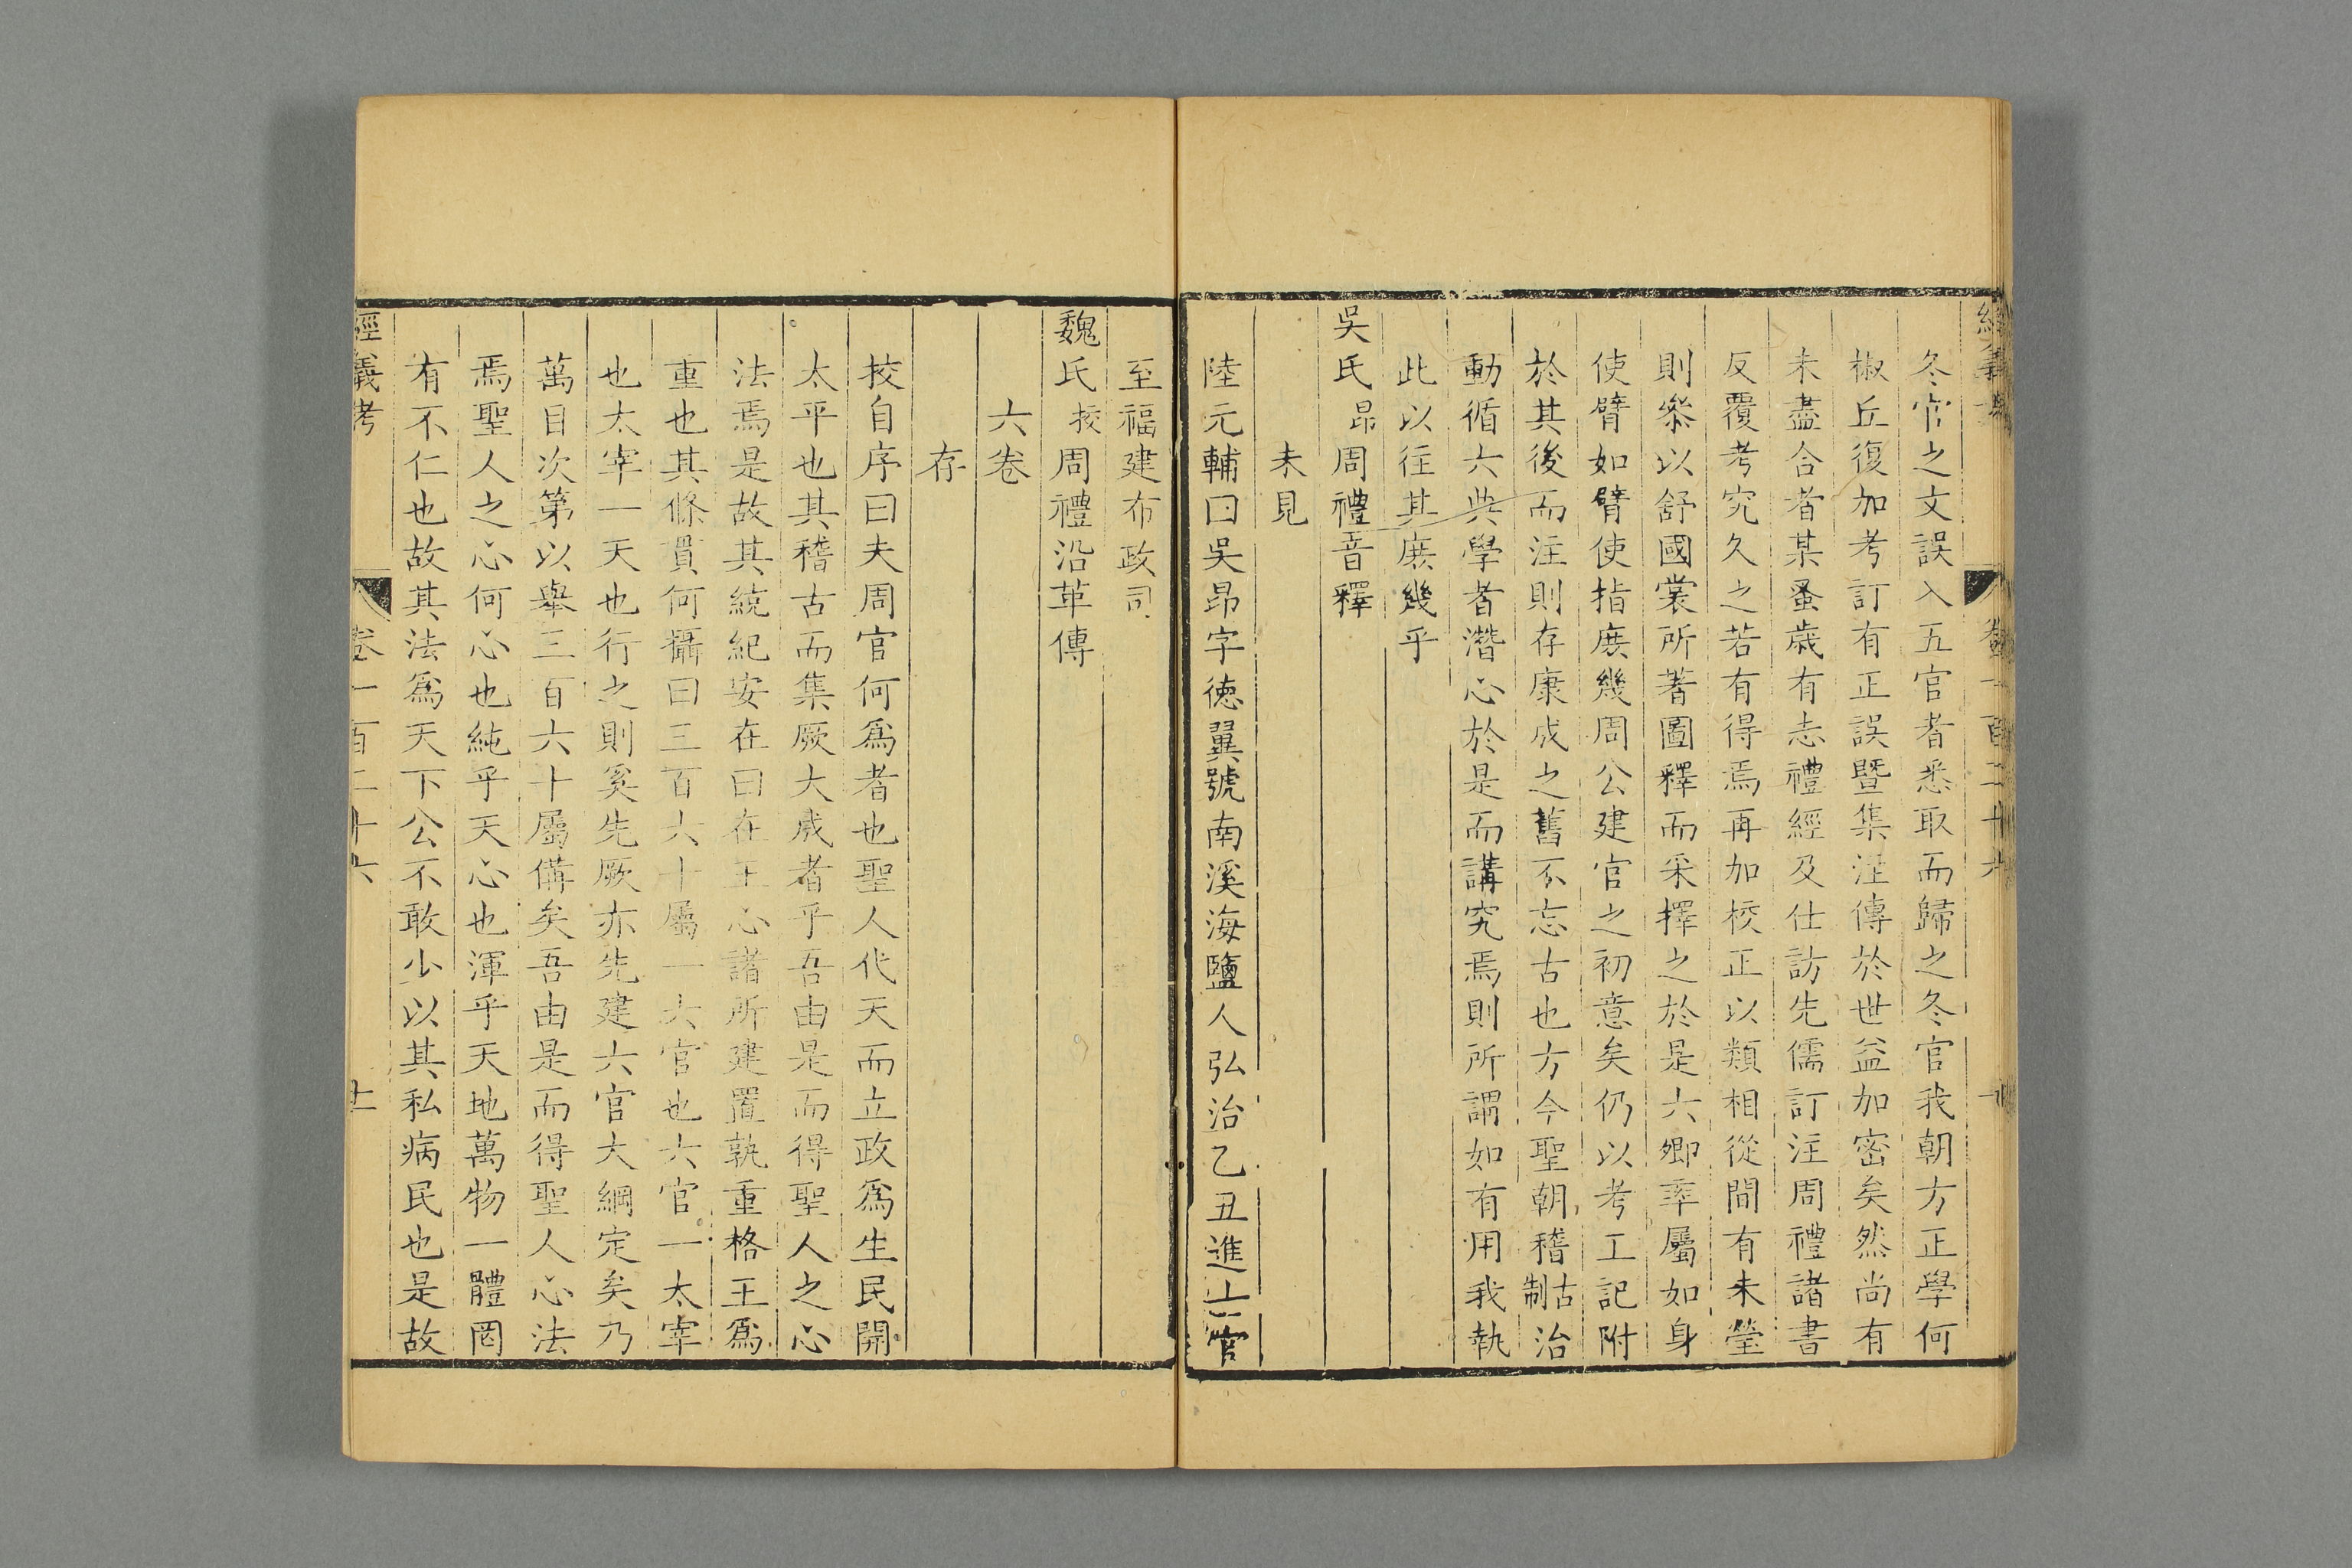 經義考 卷一百二十六 十
冬官之文誤入五官者悉取而歸之冬官我朝方正學何
椒丘復加考訂有正誤暨集注傳於世益加密矣然尚有
未盡合者某蚤歲有志禮經及仕訪先儒訂注周禮諸書
反覆考究久之若有得焉再加校正以類相從間有未瑩
則叅以舒國裳所著圖釋而采擇之於是六卿率屬如身
使臂如臂使指庻幾周公建官之初意矣仍以考工記附
於其後而注則存康成之舊不忘古也方今聖朝稽古制治
動循六典學者潛心於是而講究焉則所謂如有用我執
此以往其庻幾乎
吳氏昂周禮音釋
未見
陸元輔曰吳昂字德翼號南溪海鹽人弘治乙丑進士官
至福建布政司
魏氏校周禮沿革傳
六卷
存
校自序曰夫周官何爲者也聖人代天而立政爲生民開
太平也其稽古而集厥大成者乎吾由是而得聖人之心
法焉是故其統紀安在曰在王心諸所建置孰重格王爲
重也其條貫何攝曰三百六十屬一六官也六官一太宰
也太宰一天也行之則奚先厥亦先建六官大綱定矣乃
萬目次第以舉三百六十屬備矣吾由是而得聖人心法
焉聖人之心何心也純乎天心也渾乎天地萬物一體罔
有不仁也故其法爲天下公不敢少以其私病民也是故
經義考 卷一百二十六 十一